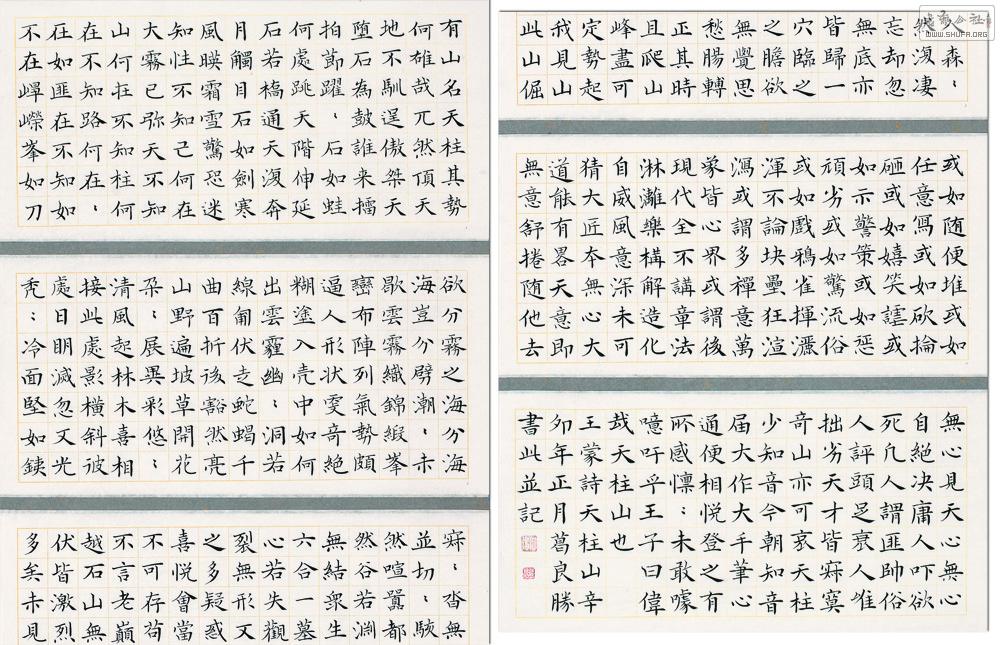 有山名天柱其勢
何雄哉兀然頂天
地不馴逞傲桀天
墮石為鼓誰来擂
拍節躍〻石如蛙
何處跳天階伸延
石若橋通天復奔
月觸目石如劍寒
風暎霜雪驚恐迷
知性不知己何在
大霧已弥天不知
山何在不知柱何
在不知路何在〻
在如匪在不知如
不在崢嶸峯如刀
欲分霧之海分海
海豈分劈潮〻赤
歇雲霧織錦緞峯
巒布陣列氣勢頗
逼人形狀雯奇絕
糊塗入壳中如何
出雲霾幽〻洞若
線匍伏走蛇蝎千
曲百折後豁然亮
山野遍坡草開花
朶〻展異彩悠〻
清風起林木喜相
接此處影橫斜彼
處日明滅忽又光
禿〻冷面堅如鋏
寐〻沓無
並切〻駭
然喧囂都
然谷若渊
無結衆生
六合一墓
心若失觀
裂無形又
之多疑惑
喜悅會當
不可存苟
不言老巔
越石山無
伏皆激烈
多矣未見
森〻
淒
忘却忽
無底亦
皆歸一
穴臨之
之膽欲
無覺思
愁腸轉
正其時
且爬山
峰盡可
定勢起
我見山
此山倔
或如随便堆或如
任意寫或如砍掄
砸或如嬉笑謔或
如示警策或如惩
頑劣或如驚流俗
或如戲鴉雀揮灑
渾不論块壘狂渲
瀉或謂多禪意萬
象皆心界或謂後
現代全不講章法
淋漓樂構解造化
自威風意深未可
猜大匠本無心大
道能有畧天意即
無意舒捲随他去
無心見天心無心
自絕决庸人吓欲
死凡人謂匪帥俗
人評頭足哀人准
拙劣天才皆寐寞
奇山亦可哀天柱
少知音今朝知音
届大作大千筆心
通便相悦登之有
所感懍〻未敢噱
噫吁乎王子曰偉
哉天柱山也
王蒙詩天柱山辛
卯年正月葛良勝
書此並記
WWW.SHUFA.ORG